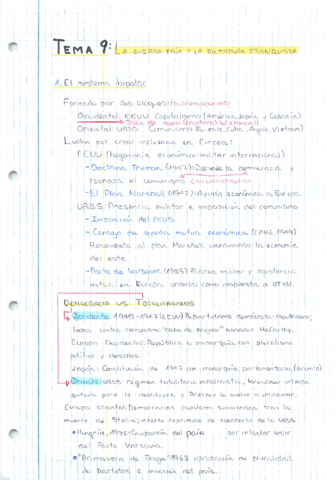 TEMA 9: LA GUERRA FRÍA Y LA DICTADURA FRANQUISTA
1. El sistema bipolar
Formado por dos bloques:
Occidental: EEUU Capitalismo (América, Japón y Oceanía)
Oriental: URSS. Comunismo (Eu. este, Cuba, Angola, Vietnam)
Lucha por crear influencia en Europa:
EEUU (hegemonía económico-militar internacional)
- Doctrina Truman (1947): Defiende la democracia y
rechaza el comunismo
- El Plan Marshall (1947): Ayuda económica a Europa.
URSS: Presencia militar e imposición del comunismo
- Imposición del PCUS
- Consejo de ayuda mutua económica (CAME, 1949)
Respuesta al plan Marshall coordinando la economía
del este.
- Pacto de Varsovia (1955) Alianza militar y asistencia
mutua en Europa oriental como respuesta a OTAN.
DEMOCRACIA VS TOTALITARISMOS
Occidente: 1945-1947 (EEUU) Bipartidismo demócrata-republicano;
lucha contra comunismo "caza de brujas" senador McCarthy.
Europa Occidental: República o monarquía con pluralismo
político y derechos.
Japón: Constitución de 1947 con monarquía parlamentaria
Oriente: URSS régimen totalitario estalinista,
Europa oriental: Democracias populares sometidas tras la
muerte de Stalin,
Hungría, 1956: Ocupación del país por intentar salir
del Pacto Varsovia.
"Primavera de Praga" 1968 aprobación de pluralidad
de partidos e invasión del país.